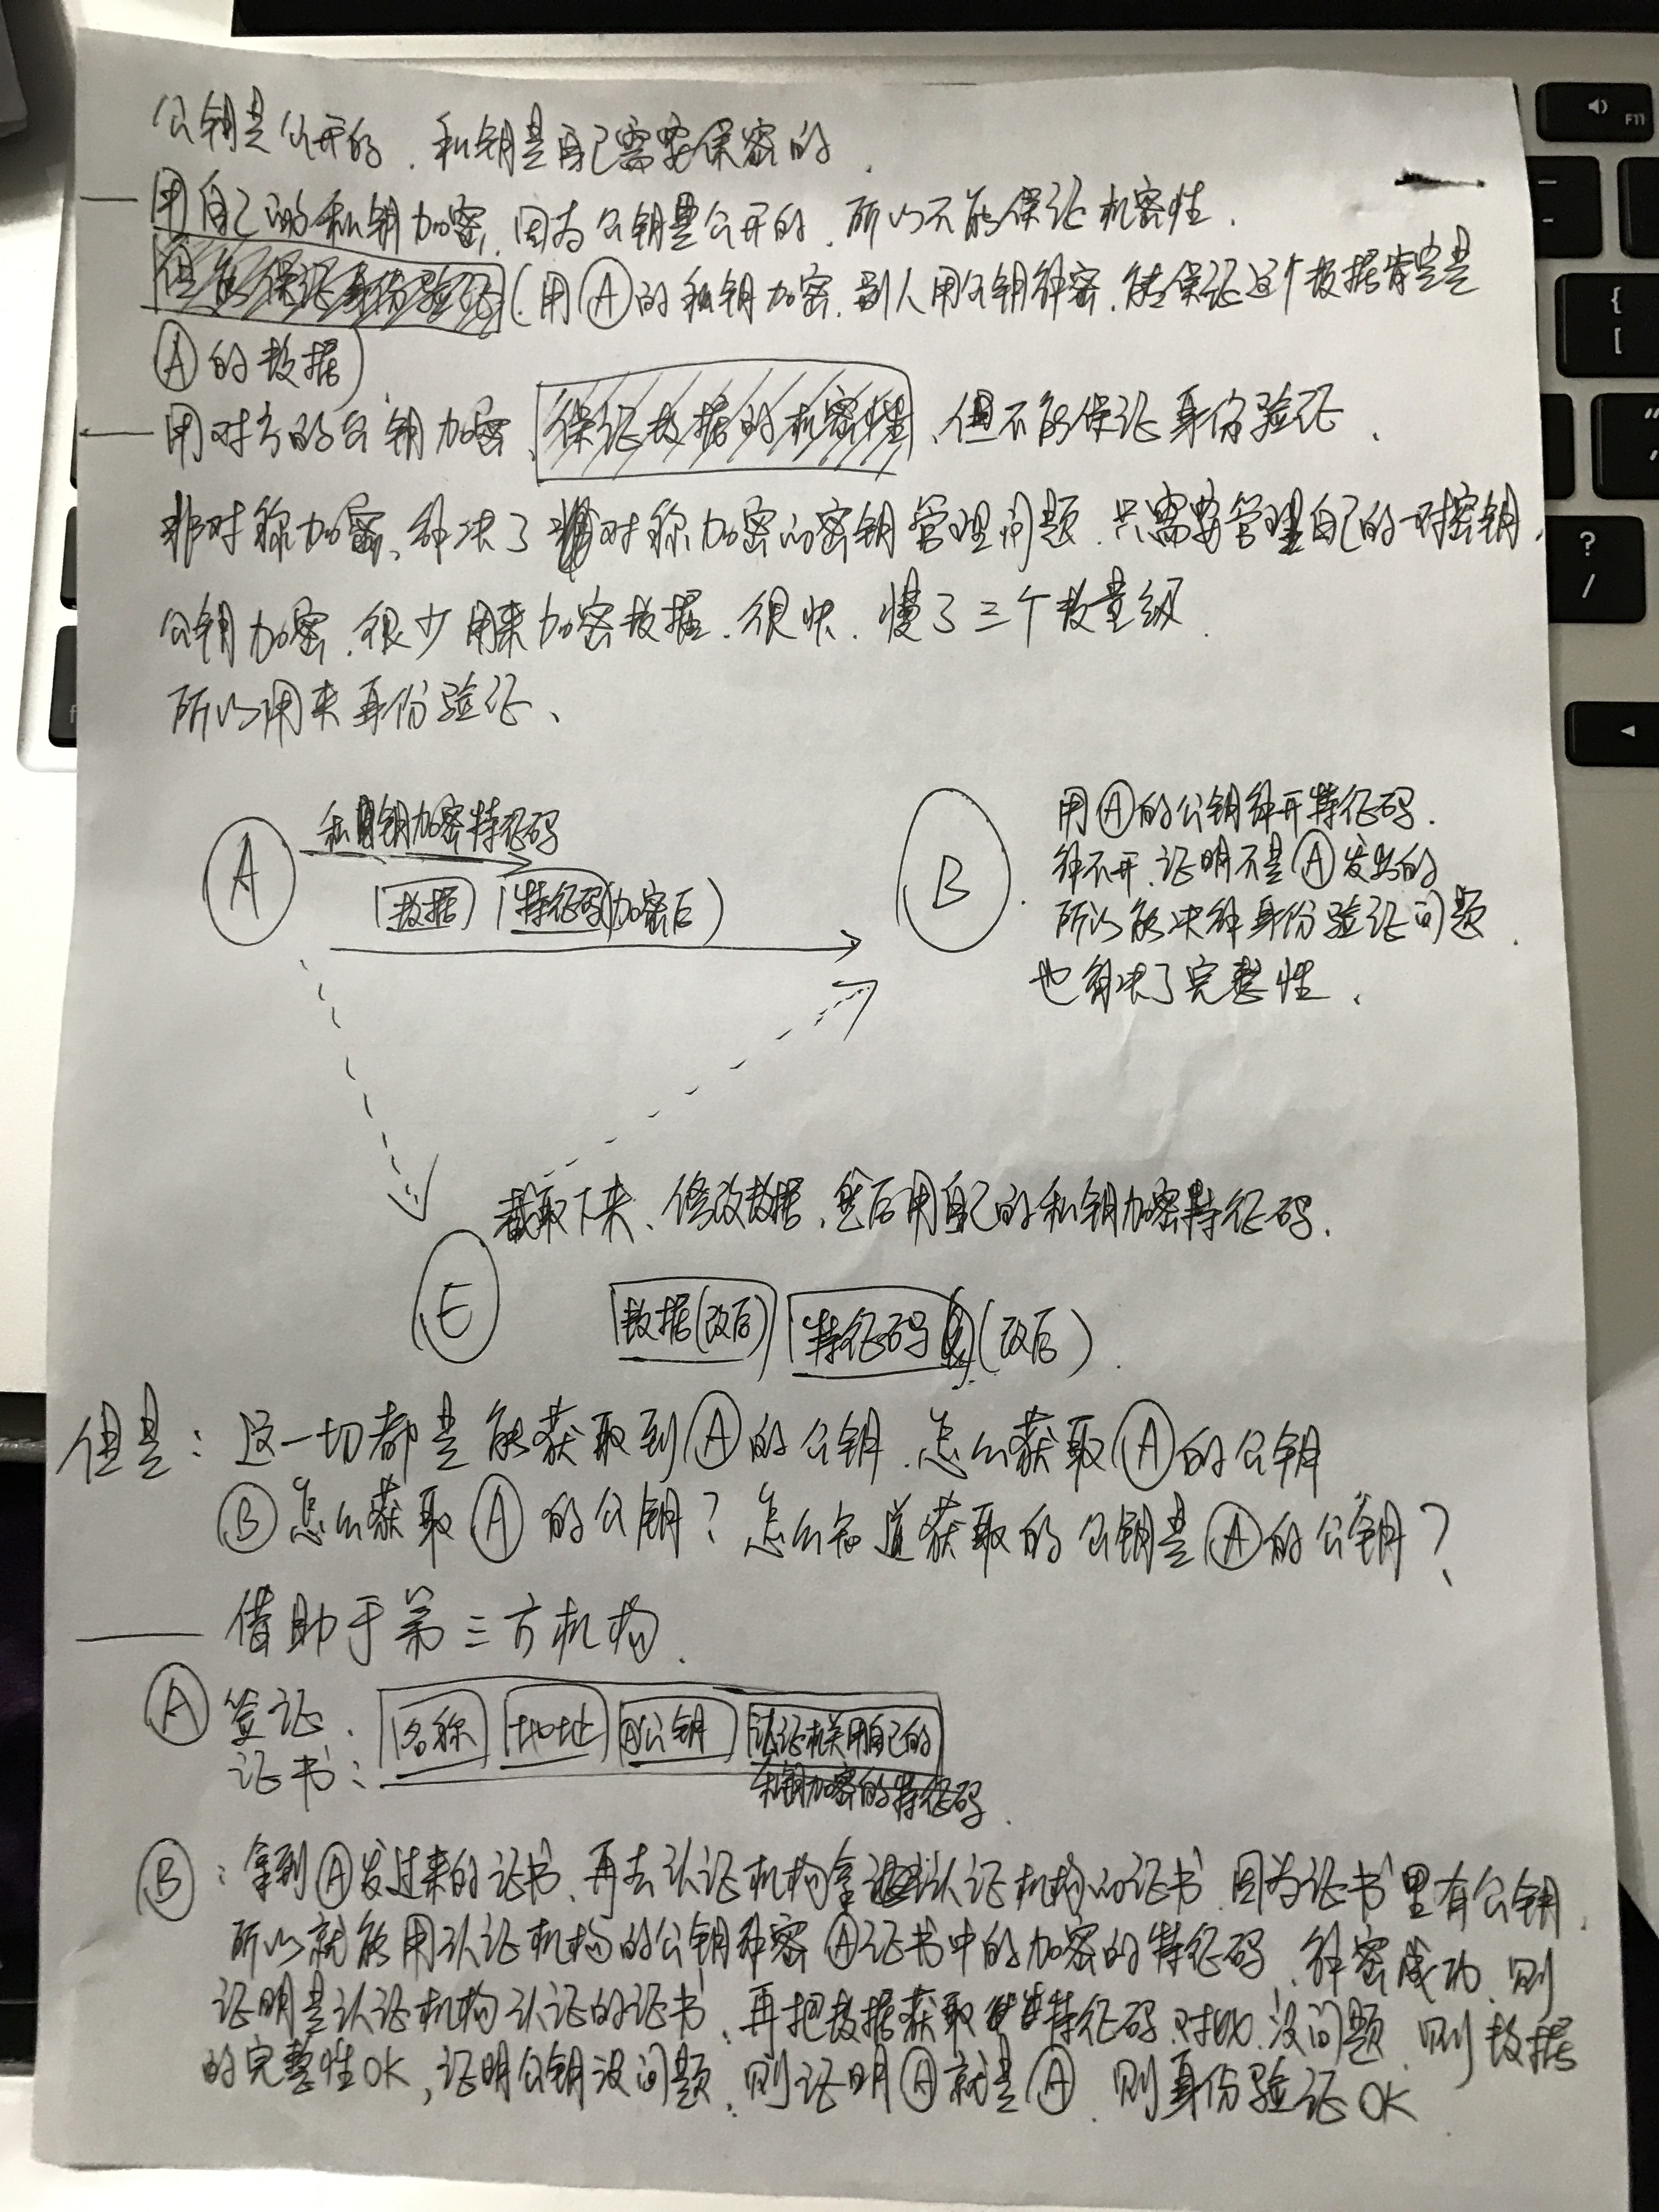 公钥是公开的，私钥是自己需要保密的．
—— 用自己的私钥加密，因为公钥是公开的，所以不能保证机密性．
但能保证身份验证（用Ⓐ的私钥加密，别人用公钥解密，能保证这个数据肯定是
Ⓐ的数据）
—— 用对方的公钥加密，保证数据的机密性，但不能保证身份验证、
非对称加密、解决了对称加密的密钥管理问题，只需要管理自己的一对密钥，
公钥加密，很少用来加密数据，很快，慢了三个数量级．
所以用来身份验证、
私钥加密特征码
A
数据 特征码(加密后)
B
用Ⓐ的公钥解开特征码．
解不开，证明不是Ⓐ发出的
所以能决解身份验证问题．
也解决了完整性、
截取下来、修改数据，然后用自己的私钥加密特征码．
E
数据(改后) 特征码(改后)．
但是：这一切都是能获取到Ⓐ的公钥，怎么获取Ⓐ的公钥
Ⓑ怎么获取Ⓐ的公钥？怎么知道获取的公钥是Ⓐ的公钥？
—— 借助于第三方机构．
Ⓐ 签证．
证书： 名称 地址 Ⓐ公钥 认证机关用自己的
私钥加密的特征码．
Ⓑ：拿到Ⓐ发过来的证书、再去认证机构拿认证机构的证书，因为证书里有公钥，
所以就能用认证机构的公钥解密Ⓐ证书中的加密的特征码、解密成功，则
证明是认证机构认证的证书、再把数据获取特征码，对比，没问题，则数据
的完整性OK，证明公钥没问题，则证明Ⓐ就是Ⓐ，则身份验证OK
F11
{
[
"
?
/